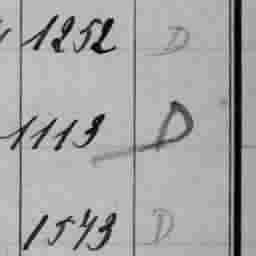 1252 D
1113 D
1543 D